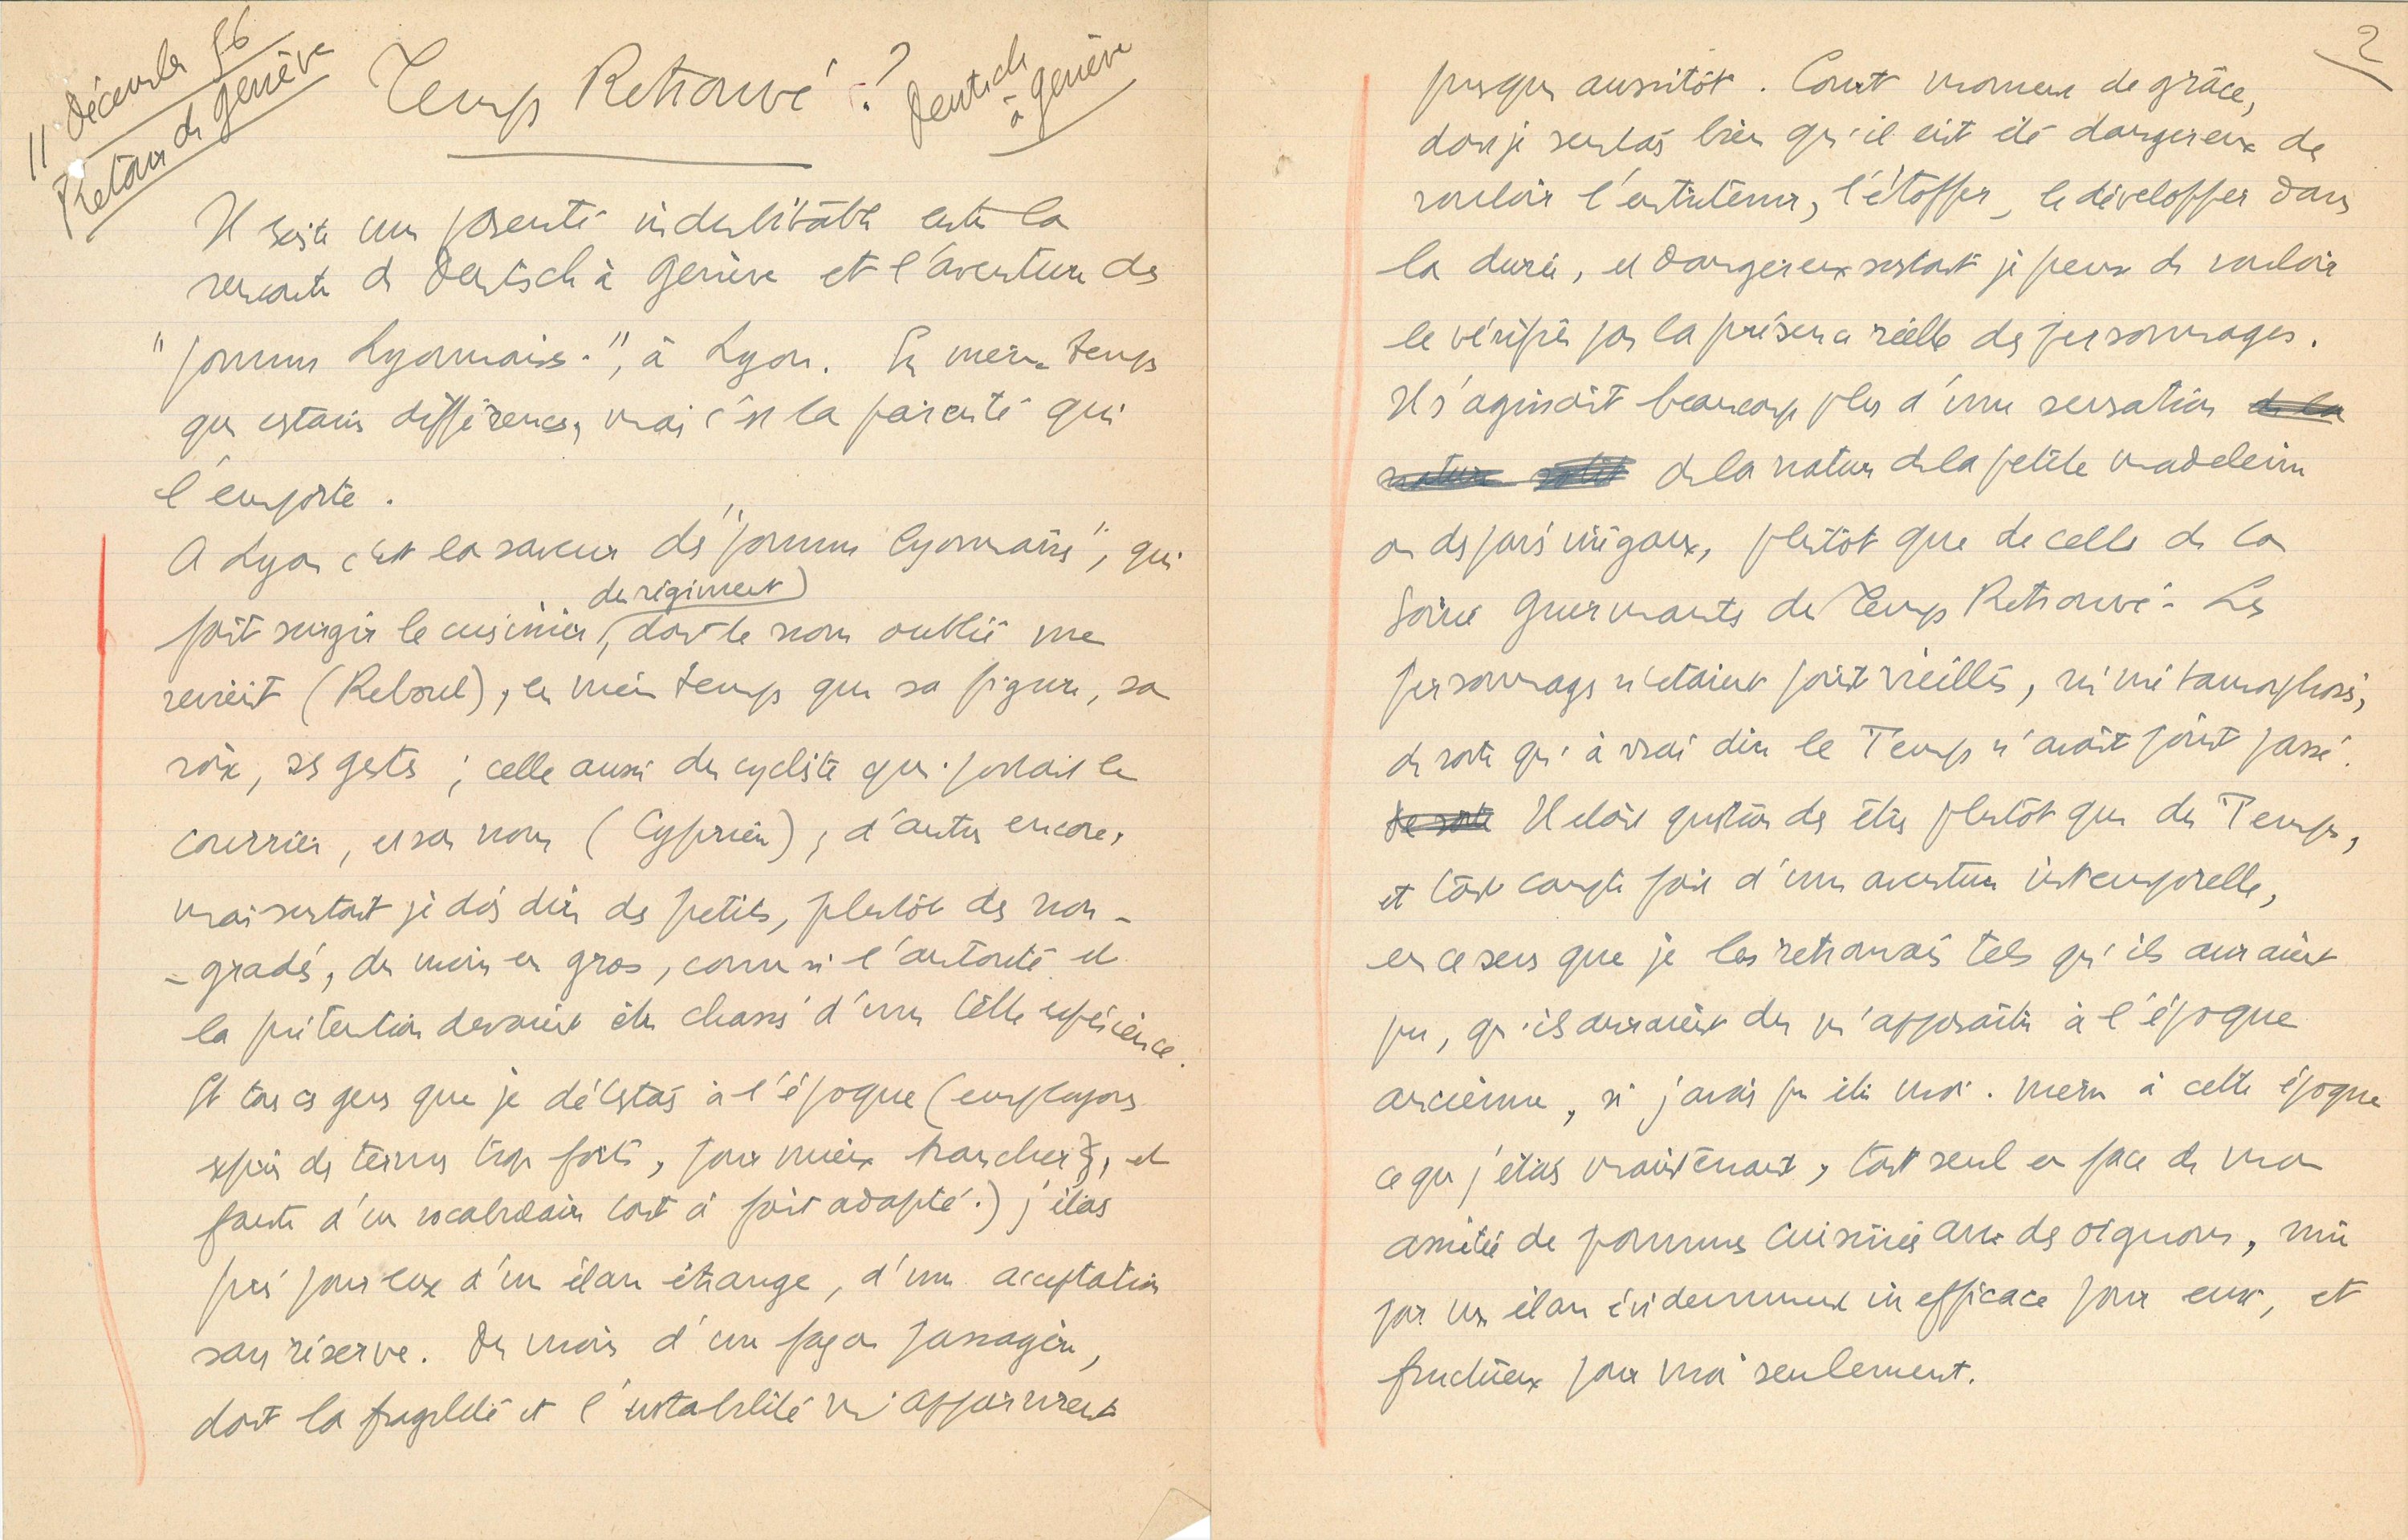 11 Décembre 56
Retour de Genève
Temps Retrouvé ?
Deutsch
à Genève
Il existe une parenté indubitable entre la
rencontre de Deutsch à Genève et l'aventure des
"pommes Lyonnaises", à Lyon. En même temps
que certaines différences, mais c'est la parenté qui
l'emporte.
A Lyon c'est la saveur des "pommes lyonnaises", qui
du régiment
fait surgir le cuisinier, dont le nom oublié me
revient (Reboul), en même temps que sa figure, sa
voix, ses gestes ; celle aussi du cycliste qui portait le
courrier, et son nom (Cyprien) ; d'autres encore,
mais surtout je dois dire des petits, plutôt des non-
-gradés, du moins en gros, comme si l'autorité et
la prétention devaient être chassés d'une telle expérience.
Et tous ces gens que je détestais à l'époque (employons
exprès des termes trop forts, pour mieux trancher, et
faute d'un vocabulaire tout à fait adapté.) j'étais
pris pour eux d'un élan étrange, d'une acceptation
sans réserve. Du moins d'une façon passagère,
dont la fragilité et l'instabilité m'apparurent
2
presque aussitôt. Court moment de grâce,
dont je sentais bien qu'il eût été dangereux de
vouloir l'entretenir, l'étoffer, le développer dans
la durée, et dangereux surtout je pense de vouloir
le vérifier par la présence réelle des personnages.
Il s'agissait beaucoup plus d'une sensation de la
nature de la nature de la petite madeleine
ou des pavés inégaux, plutôt que de celle de la
soirée Guermantes du Temps Retrouvé. Les
personnages n'étaient point vieillis, ni métamorphosés,
de sorte qu'à vrai dire le Temps n'avait point passé.
De sorte Il était question des êtres plutôt que du Temps,
et tout compte fait d'une aventure intemporelle,
en ce sens que je les retrouvais tels qu'ils auraient
pu, qu'ils auraient dû m'apparaître à l'époque
ancienne, si j'avais pu être moi-même à cette époque
ce que j'étais maintenant, tout seul en face de mon
assiette de pommes cuisinées avec des oignons, mû
par un élan évidemment inefficace pour eux, et
fructueux pour moi seulement.